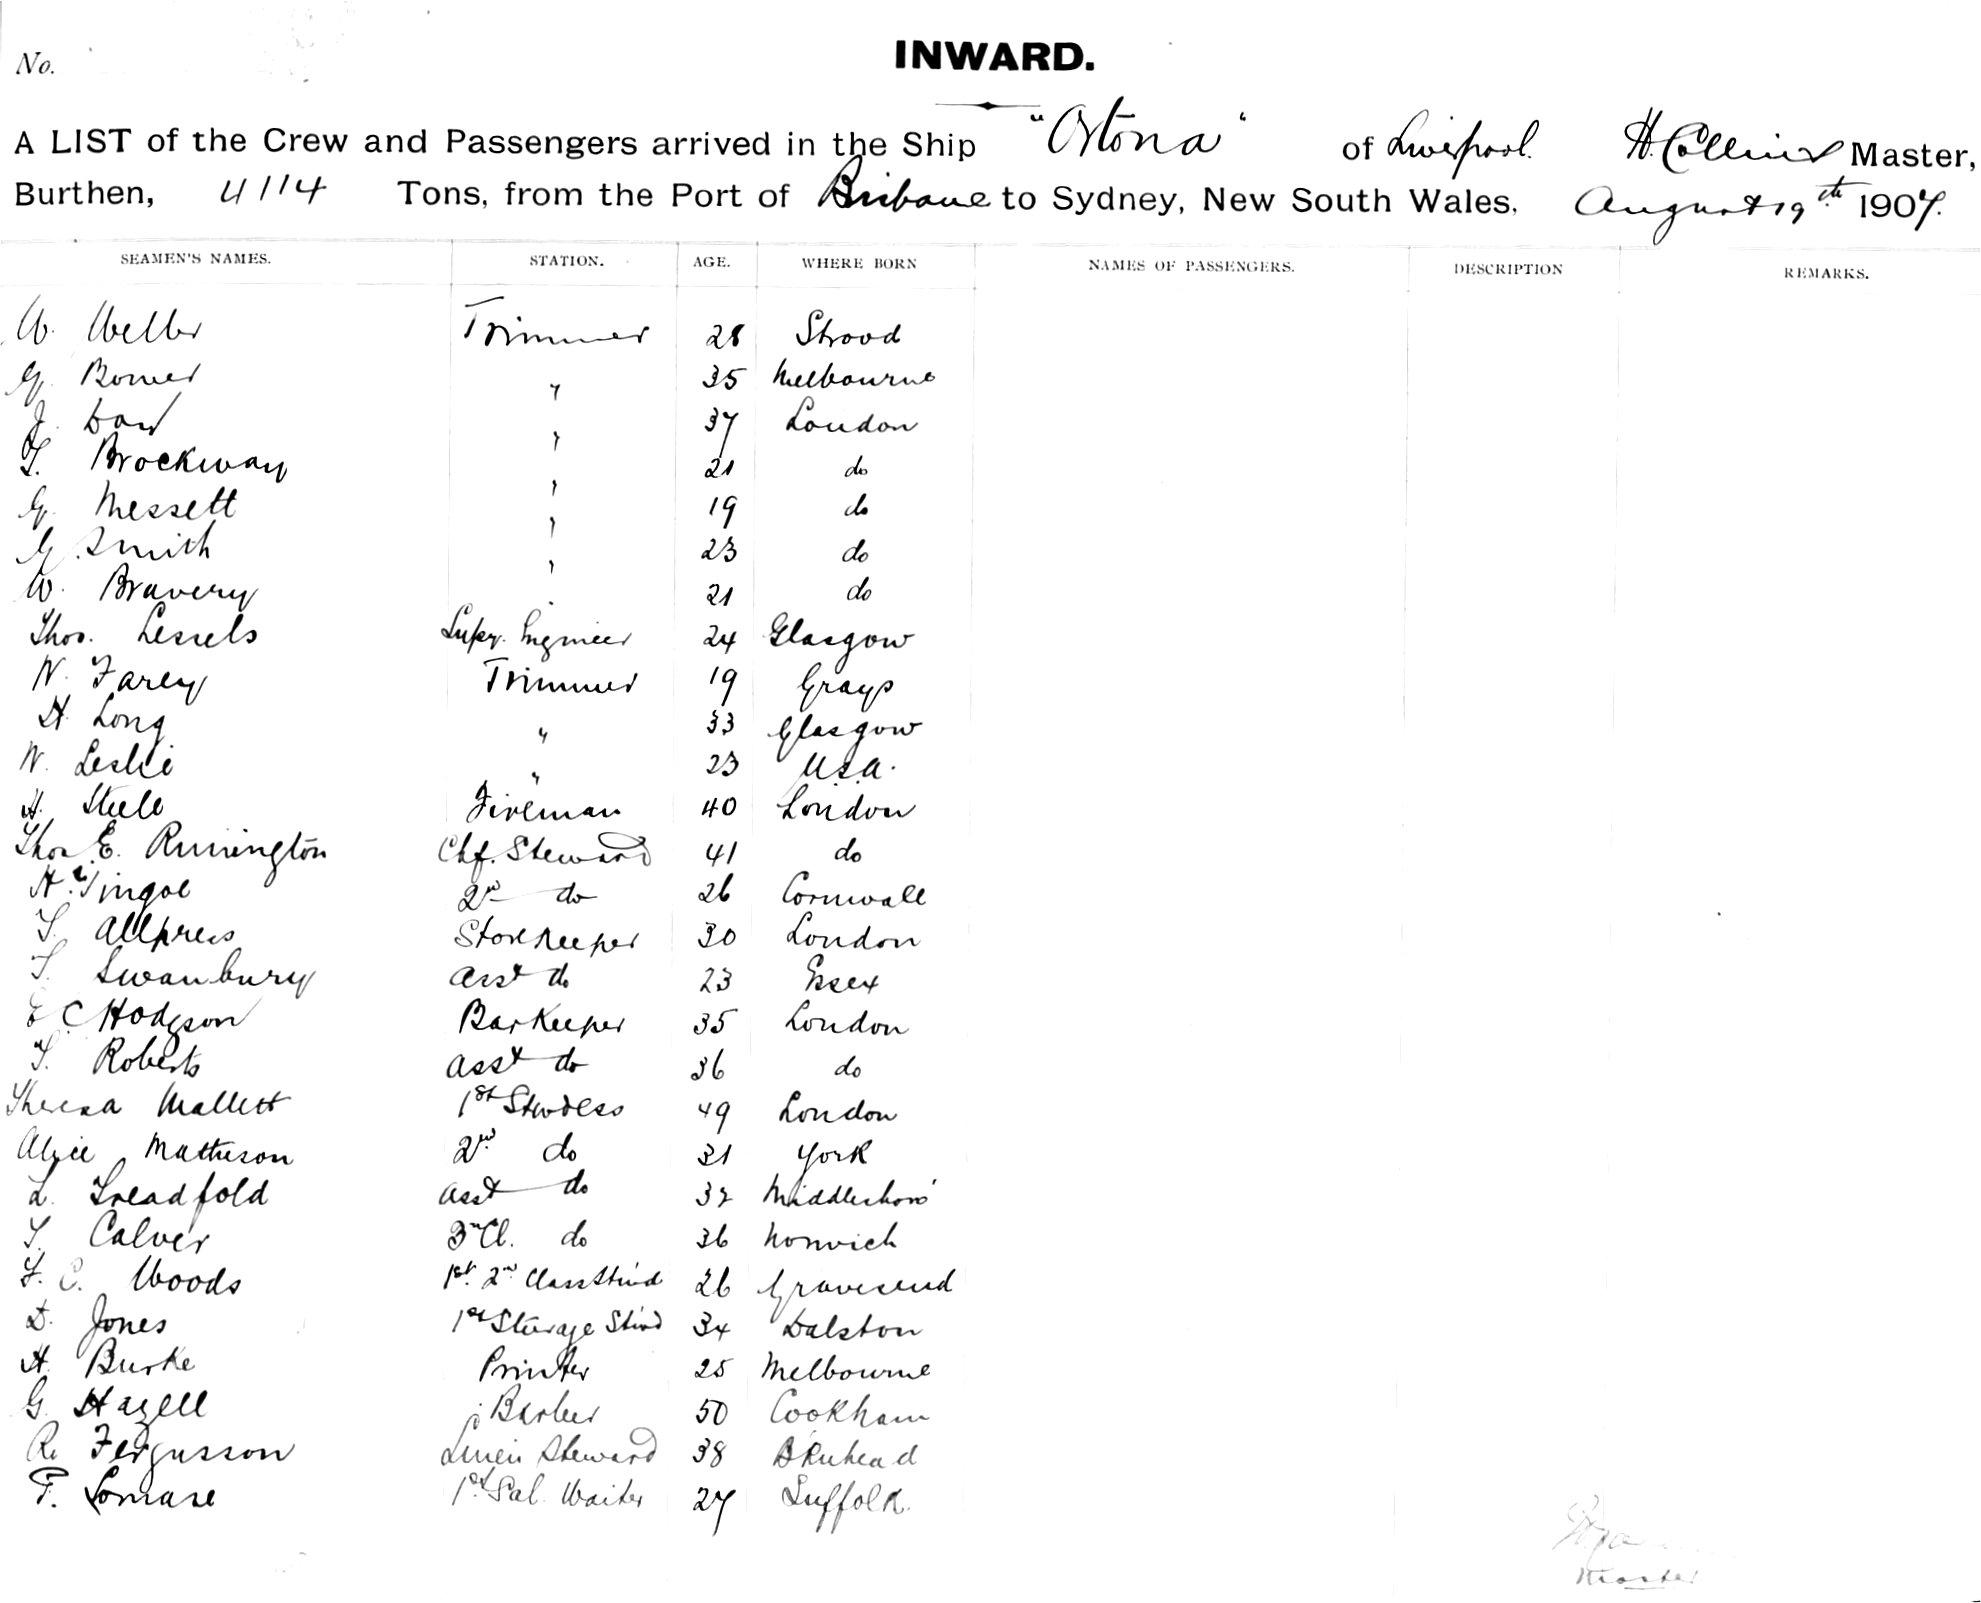 No.
INWARD.
A LIST of the Crew and Passengers arrived in the Ship "Ortona" of Liverpool. H. Collins Master,
Burthen, 4114 Tons, from the Port of Brisbane to Sydney, New South Wales, August 19th 1907.
SEAMEN'S NAMES. STATION. AGE. WHERE BORN NAMES OF PASSENGERS. DESCRIPTION REMARKS.
W. Weller Trimmer 28 Strood
G. Bower " 35 Melbourne
J. Daw " 37 London
T. Brockway " 21 do
G. Messett " 19 do
G. Smith " 23 do
W. Bravery " 21 do
Thos. Lessels Supy. Engineer 24 Glasgow
W. Farey Trimmer 19 Grays
H. Long " 33 Glasgow
W. Leslie " 23 U.S.A.
H. Steele Fireman 40 London
Thos E. Rimington Chf. Steward 41 do
H. Tingoe 2nd do 26 Cornwall
T. Allpress Storekeeper 30 London
T. Swanbury Asst do 23 Essex
E C Hodgson Barkeeper 35 London
T. Roberts Asst do 36 do
Theresa Mallett 1st Stwdess 49 London
Alice Matheson 2nd do 31 York
L. Treadfold Asst do 32 Middlesboro'
T. Calver 3rd Cl. do 36 Norwich
F. C. Woods 1st 2nd Class Stwd 26 Gravesend
D. Jones 1st Steerage Stwd 34 Dalston
H. Burke Printer 25 Melbourne
G. Hazell Barber 50 Cookham
R. Fergusson Linen Steward 38 B'Kenhead
F. Lomase 1st Sal. Waiter 27 Suffolk.
Master